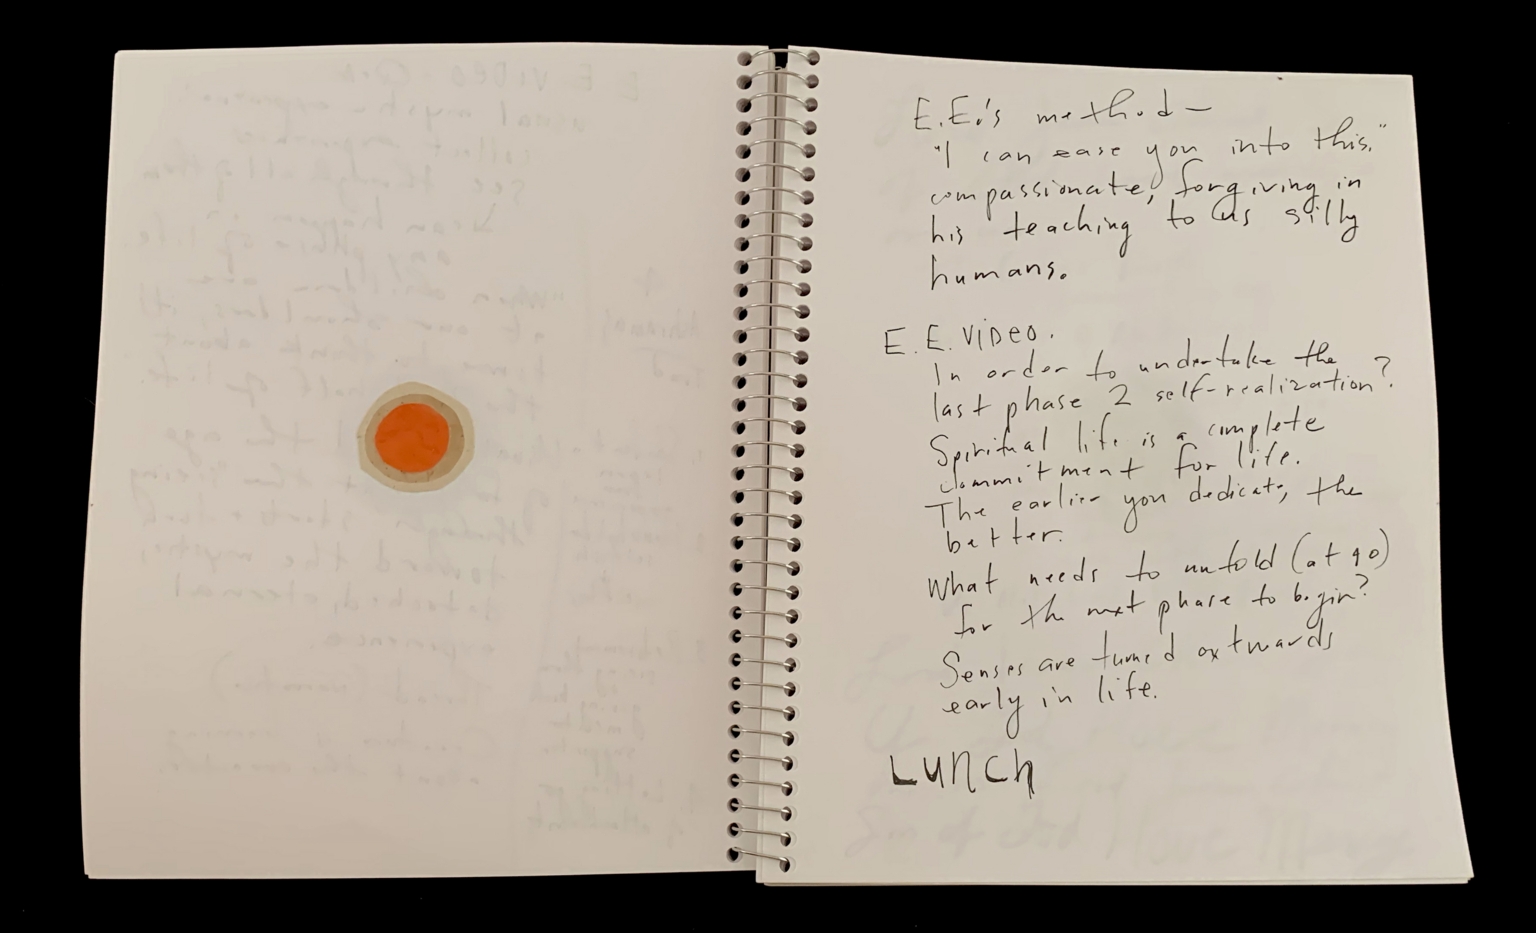 E.E.'s method —
"I can ease you into this."
compassionate, forgiving in
his teaching to us silly
humans.
E. E. VIDEO.
In order to undertake the
last phase 2 self-realization?
Spiritual life is a complete
commitment for life.
The earlier you dedicate, the
better.
What needs to unfold (at 90)
for the next phase to begin?
Senses are turned outwards
early in life.
LUNCH